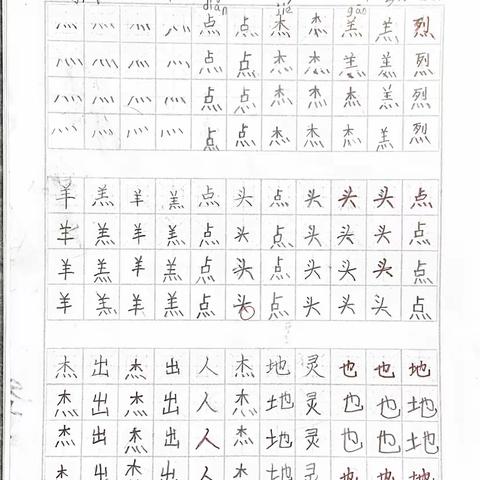 diǎn jié gāo
灬 灬 灬 灬 点 点 杰 杰 羔 羔 烈
灬 灬 灬 灬 点 点 杰 杰 羔 羔 烈
灬 灬 灬 灬 点 点 杰 杰 杰 羔 烈
灬 灬 灬 灬 点 点 杰 杰 杰 羔 烈
羊 羔 羊 羔 点 头 点 头 头 头 点
羊 羔 羊 羔 点 头 点 头 头 头 点
羊 羔 羊 羔 点 头 点 头 头 头 点
羊 羔 羊 羔 点 头 点 头 头 头 点
杰 出 杰 出 人 杰 地 灵 也 也 地
杰 出 杰 出 人 杰 地 灵 也 也 地
杰 出 杰 出 人 杰 地 灵 也 也 地
杰 出 杰 出 人 杰 地 灵 也 也 地